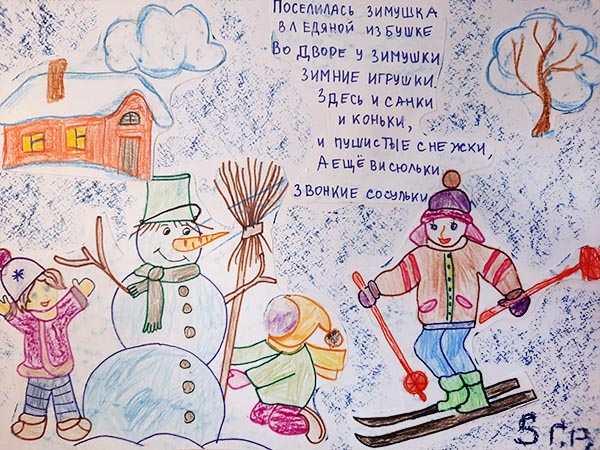 Поселилась зимушка
В ледяной избушке
Во дворе у зимушки
зимние игрушки.
Здесь и санки
и коньки,
и пушистые снежки,
А ещё висюльки
Звонкие сосульки
5 гр.